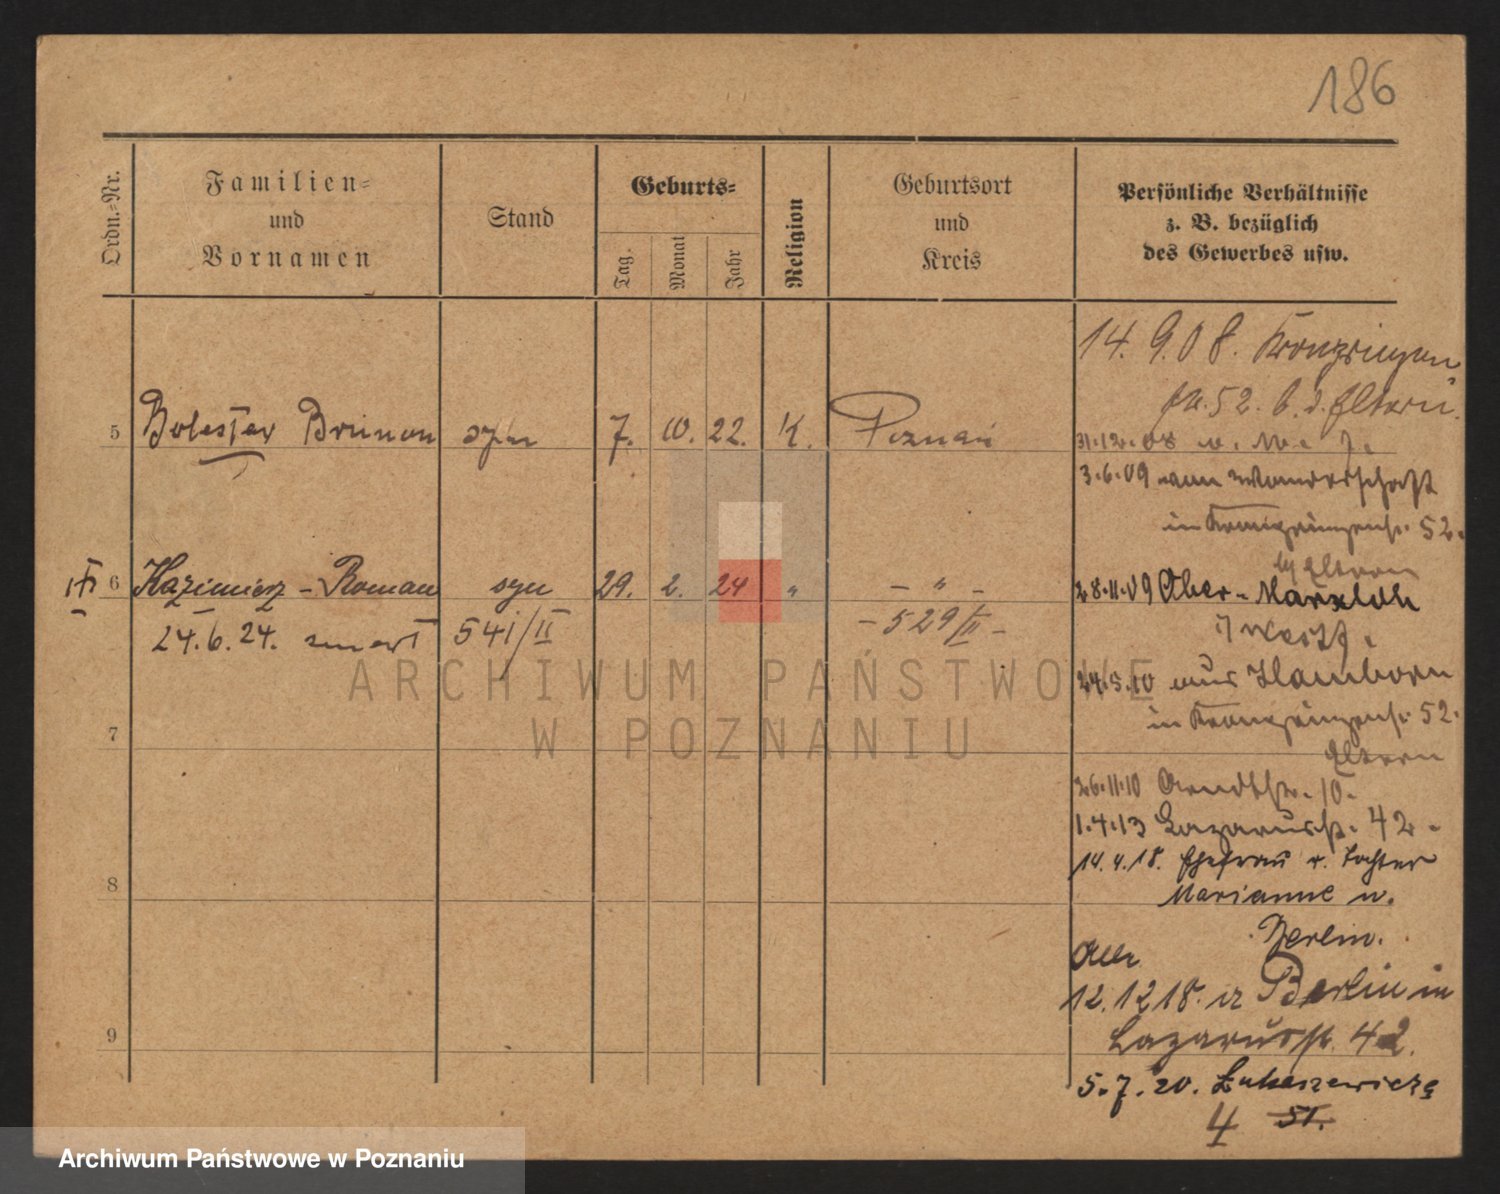 186
Ordn.-Nr.
Familien-
und
Vornamen
Stand
Geburts-
Tag.
Monat
Jahr
Religion
Geburtsort
und
Kreis
Persönliche Verhältnisse
z. B. bezüglich
des Gewerbes usw.
5 Bolesław Brunon syn 7. 10. 22. K. Poznań
6 Kazimierz - Roman syn 29. 2. 24 „ - „ -
24.6.24. zmarł 541/II - 529/II -
7
8
9
14. 9. 08. Kronprinzen
str. 52. b. d. Eltern.
31.12.08
3.6.09 von Wanderschaft
in Kronprinzenstr. 52.
b/ Eltern
28.11.09 Ober-Marxloh
24.5.10 aus Hamborn
in Kronprinzenstr. 52.
Eltern
26.11.10 Arndtstr. 10.
1.4.13 Lazarusstr. 42.
14. 4. 18. Ehefrau u. Tochter
Marianne n.
Berlin.
Alle
12. 12 18. a Berlin in
Lazarusstr. 42.
5. 7. 20. Łukaszewicza
4 51.
ARCHIWUM PAŃSTWOWE
W POZNANIU
Archiwum Państwowe w Poznaniu